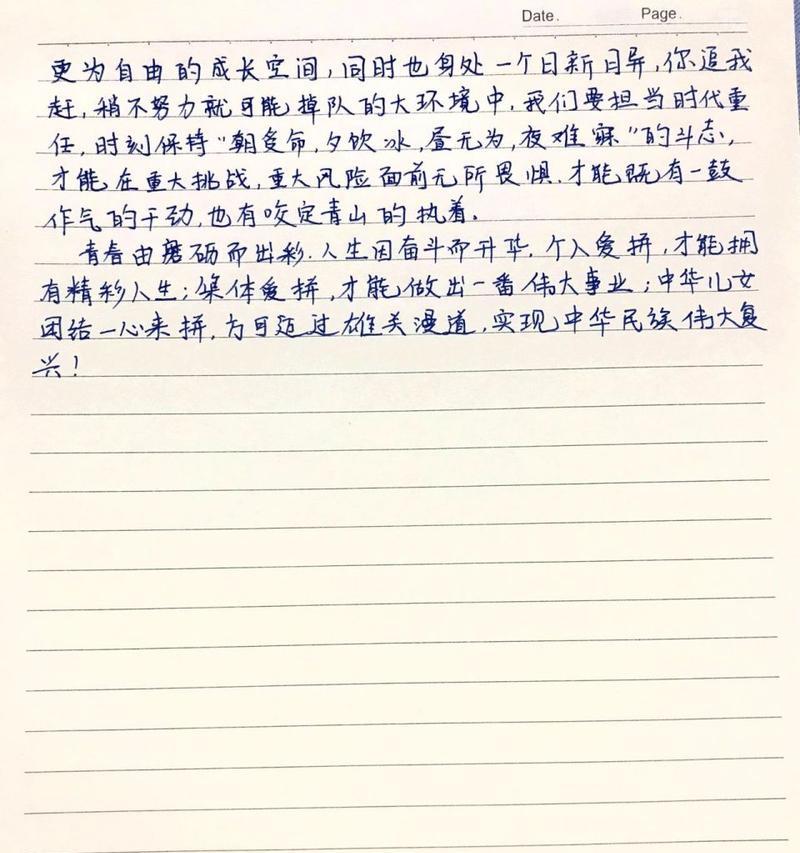 Date.
Page.
更为自由的成长空间,同时也身处一个日新日异,你追我
赶,稍不努力就可能掉队的大环境中,我们要担当时代重
任,时刻保持“朝受命,夕饮冰,昼无为,夜难寐”的斗志,
才能在重大挑战,重大风险面前无所畏惧.才能既有一鼓
作气的干劲,也有咬定青山的执着.
青春由磨砺而出彩.人生因奋斗而升华.个人爱拼,才能拥
有精彩人生;集体爱拼,才能做出一番伟大事业;中华儿女
团结一心来拼,方可迈过雄关漫道,实现中华民族伟大复
兴!